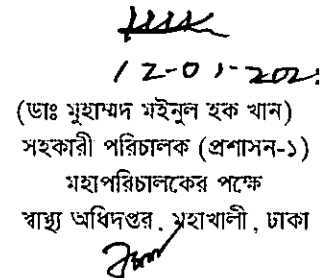 (ডাঃ মুহাম্মদ মইনুল হক খান)
সহকারী পরিচালক (প্রশাসন-১)
মহাপরিচালকের পক্ষে
স্বাস্থ্য অধিদপ্তর, মহাখালী, ঢাকা